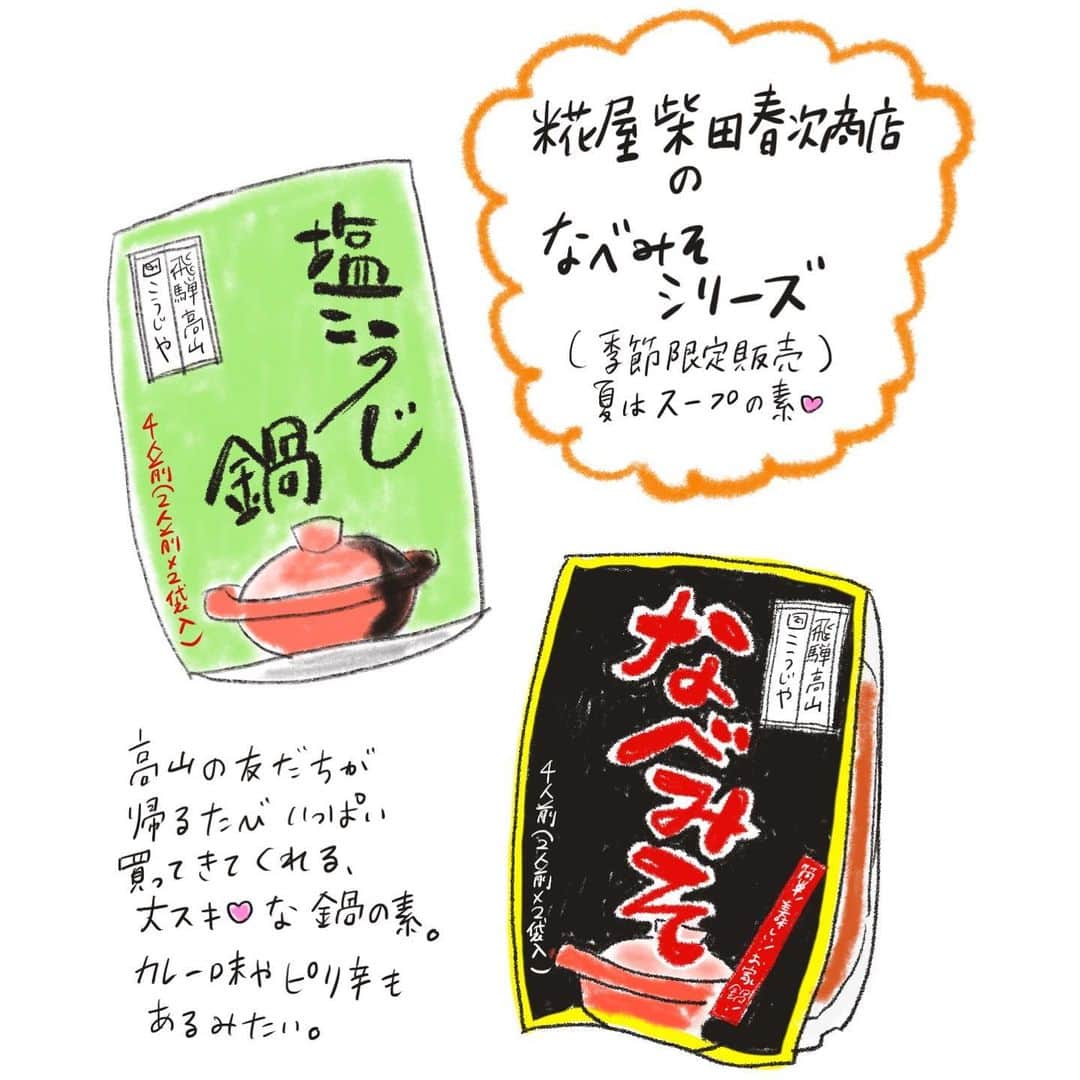 糀屋 柴田春次商店
の
なべみそ
シリーズ
(季節限定販売)
夏はスープの素
塩こうじ
鍋
飛騨高山
こうじや
4人前(2人前×2袋入)
なべみそ
飛騨高山
こうじや
4人前(2人前×2袋入)
簡単!美味しい!お家鍋!
高山の友だちが
帰るたび いっぱい
買ってきてくれる、
大スキ♡な 鍋の素。
カレー味や ピリ辛も
あるみたい。